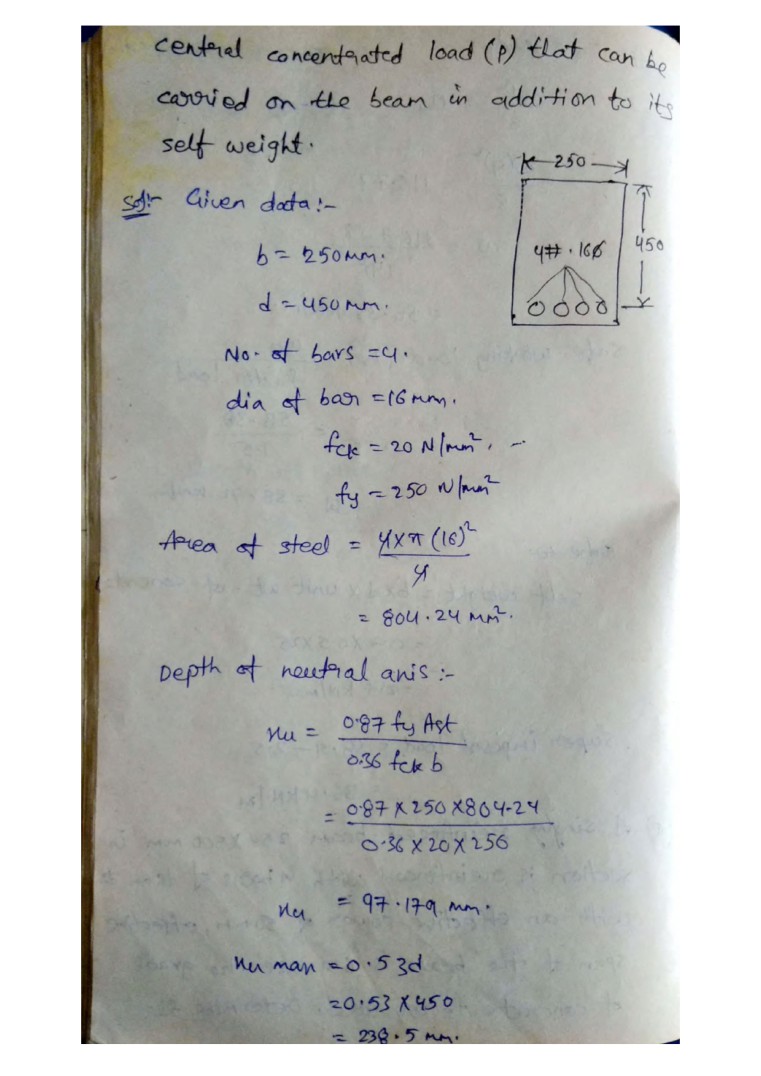 central concentrated load (P) that can be
carried on the beam in addition to its
self weight.
250
Sol:- Given data:-
b = 250mm.
4#.16ϕ
450
d = 450 mm.
No. of bars = 4.
dia of bar = 16 mm.
fck = 20 N/mm².
fy = 250 N/mm²
Area of steel = 4×π(16)²
4
= 804.24 mm².
Depth of neutral axis :-
xu = 0.87 fy Ast
0.36 fck b
= 0.87 × 250 × 804.24
0.36 × 20 × 250
xu = 97.179 mm.
xu max = 0.53d
= 0.53 × 450
= 238.5 mm.